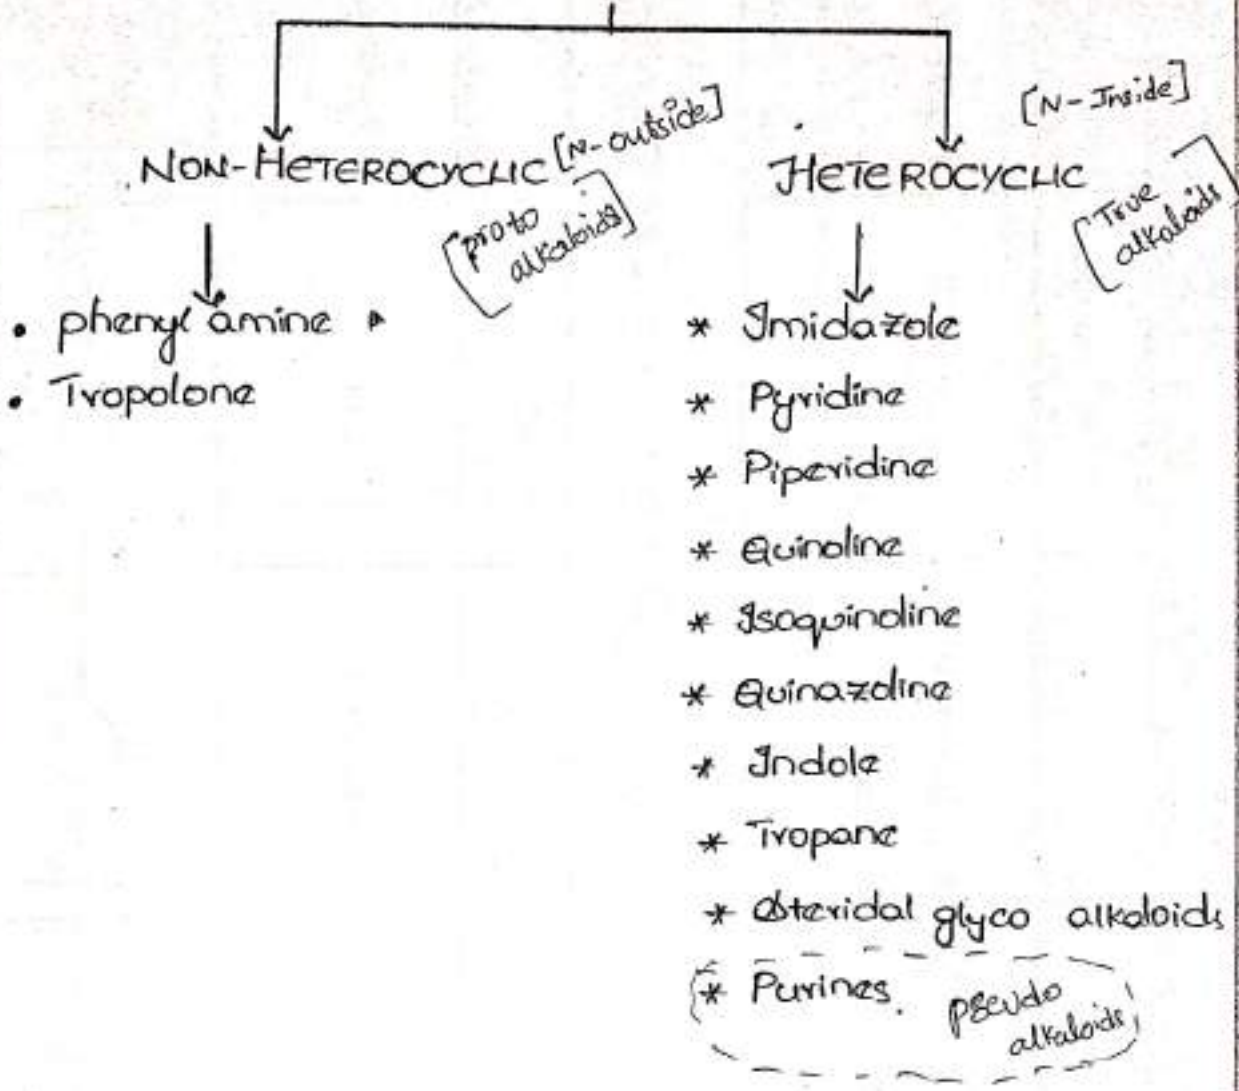 NON-HETEROCYCLIC [N-outside]
[proto
alkaloids]
• phenyl amine
• Tropolone
[N-Inside]
HETEROCYCLIC
[True
alkaloids]
* Imidazole
* Pyridine
* Piperidine
* Quinoline
* Isoquinoline
* Quinazoline
* Indole
* Tropane
* Steridal glyco alkaloids
* Purines.
pseudo
alkaloids